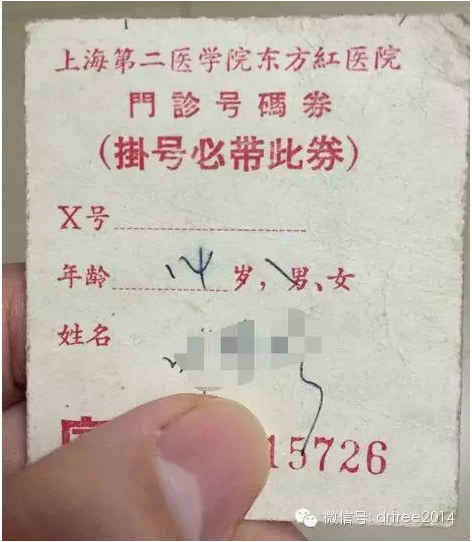 上海第二医学院东方紅医院
門診号碼券
(掛号必带此券)
X号
年龄 14 岁,男、女
姓名
15726
微信号: drtree2014